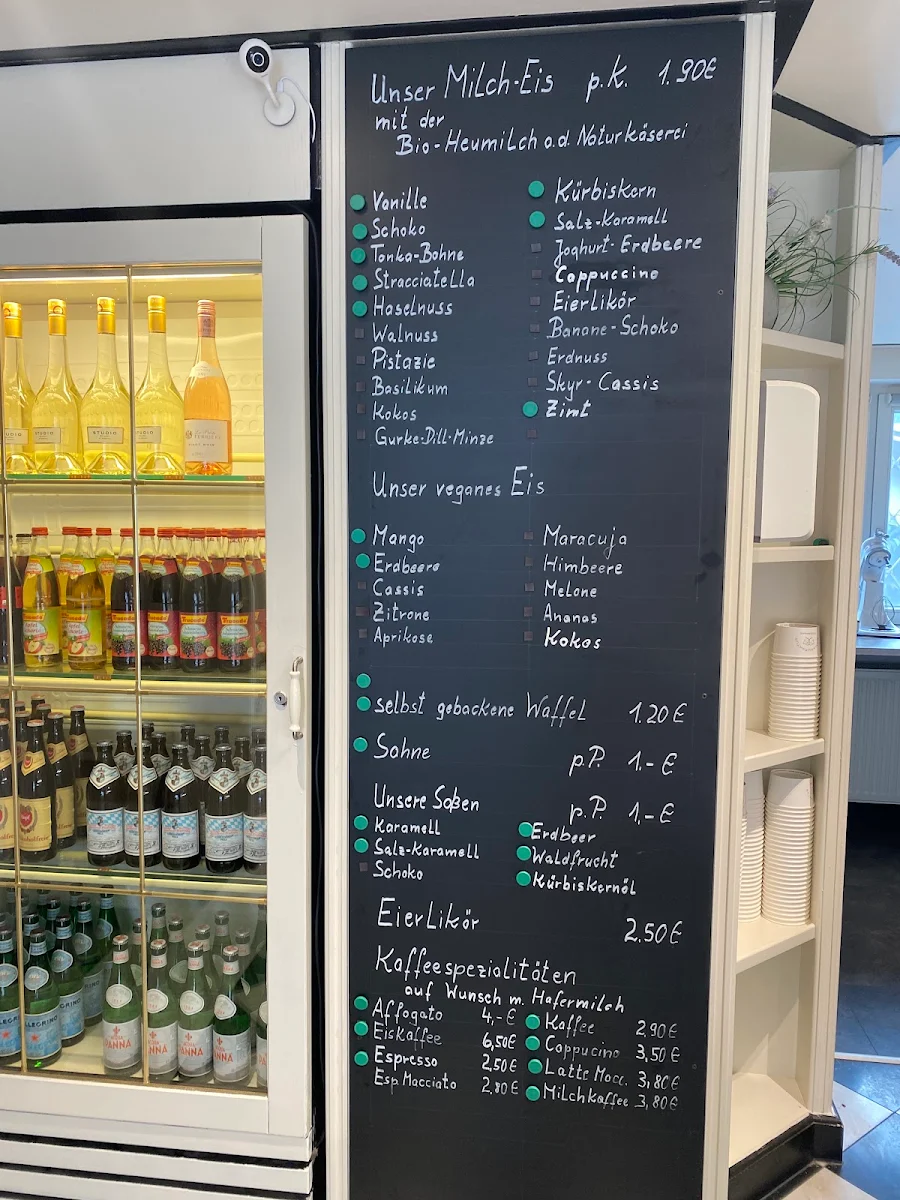 Unser Milch-Eis p.K. 1.90€
mit der
Bio-Heumilch a.d. Naturkäserei
Vanille
Schoko
Tonka-Bohne
Stracciatella
Haselnuss
Walnuss
Pistazie
Basilikum
Kokos
Gurke-Dill-Minze
Kürbiskern
Salz-Karamell
Joghurt-Erdbeere
Cappuccino
Eierlikör
Banane-Schoko
Erdnuss
Skyr-Cassis
Zimt
Unser veganes Eis
Mango
Erdbeere
Cassis
Zitrone
Aprikose
Maracuja
Himbeere
Melone
Ananas
Kokos
selbst gebackene Waffel 1.20€
Sahne p.P. 1.-€
Unsere Soßen p.P. 1,-€
Karamell
Salz-Karamell
Schoko
Erdbeer
Waldfrucht
Kürbiskernöl
Eierlikör 2.50€
Kaffeespezialitäten
auf Wunsch m. Hafermilch
Affogato 4,-€
Eiskaffee 6,50€
Espresso 2,50€
Esp. Macciato 2,80€
Kaffee 2,90€
Cappucino 3,50€
Latte Macc. 3,80€
Milchkaffee 3,80€
STUDIO
PELLEGRINO
PANNA